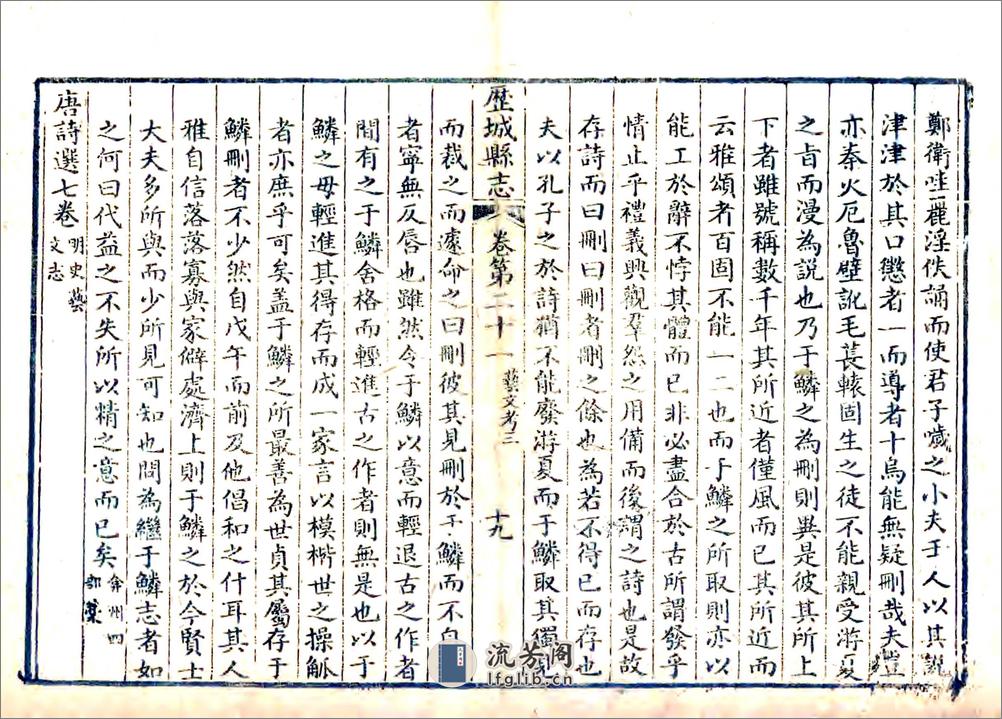 鄭衛哇麗淫佚誦而使君子識之小夫壬人以其說
津津於其口懲者一而導者十烏能無疑刪哉夫豈
亦秦火厄魯壁訛毛萇轅固生之徒不能親受游夏
之旨而漫為說也乃于鱗之為刪則異是彼其所上
下者雖號稱數千年其所近者僅風而已其所近而
云雅頌者百固不能一二也而于鱗之所取則亦以
能工於辭不悖其體而已非必盡合於古所謂發乎
情止乎禮義興觀羣怨之用備而後謂之詩也是故
存詩而曰刪曰刪者刪之餘也為若不得已而存也
夫以孔子之於詩猶不能廢游夏而于鱗取其獨
歷城縣志 卷第二十一 藝文考三 十九
而裁之而遽命之曰刪彼其見刪於于鱗而不自
者寧無反唇也雖然令于鱗以意而輕退古之作者
間有之于鱗舍格而輕進古之作者則無是也以于
鱗之毋輕進其得存而成一家言以模楷世之操觚
者亦庶乎可矣盖于鱗之所最善為世貞其屬存于
鱗刪者不少然自戊午而前及他倡和之什耳其人
雅自信落落寡與家僻處濟上則于鱗之於今賢士
大夫多所與而少所見可知也問為繼于鱗志者如
之何曰代益之不失所以精之意而已矣 弇州四部槀
唐詩選七卷 明史藝文志
流芳阁
lfglib.cn